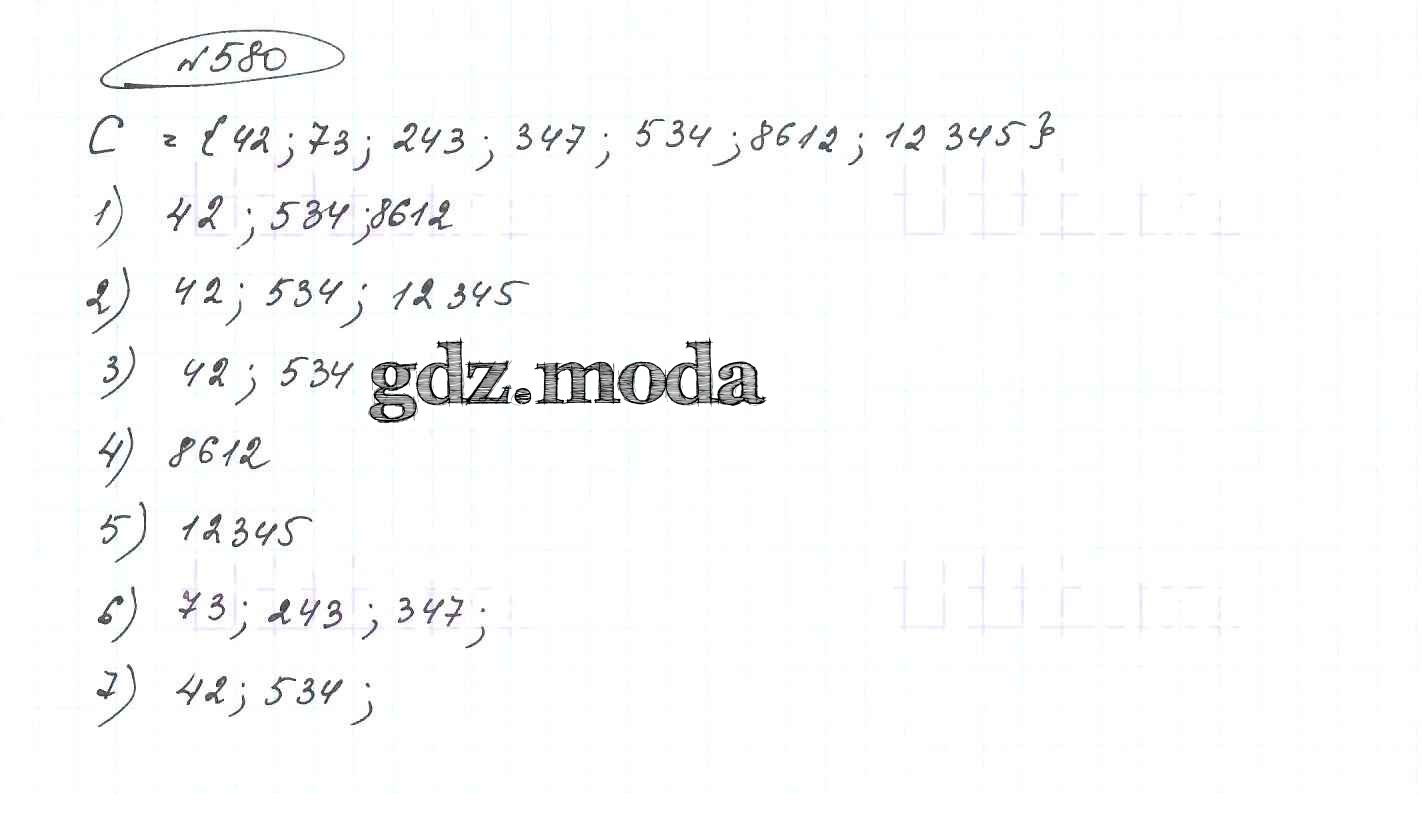 №580
C = {42; 73; 243; 347; 534; 8612; 12 345}
1) 42; 534; 8612
2) 42; 534; 12 345
3) 42; 534
gdz.moda
4) 8612
5) 12345
6) 73; 243; 347;
7) 42; 534;